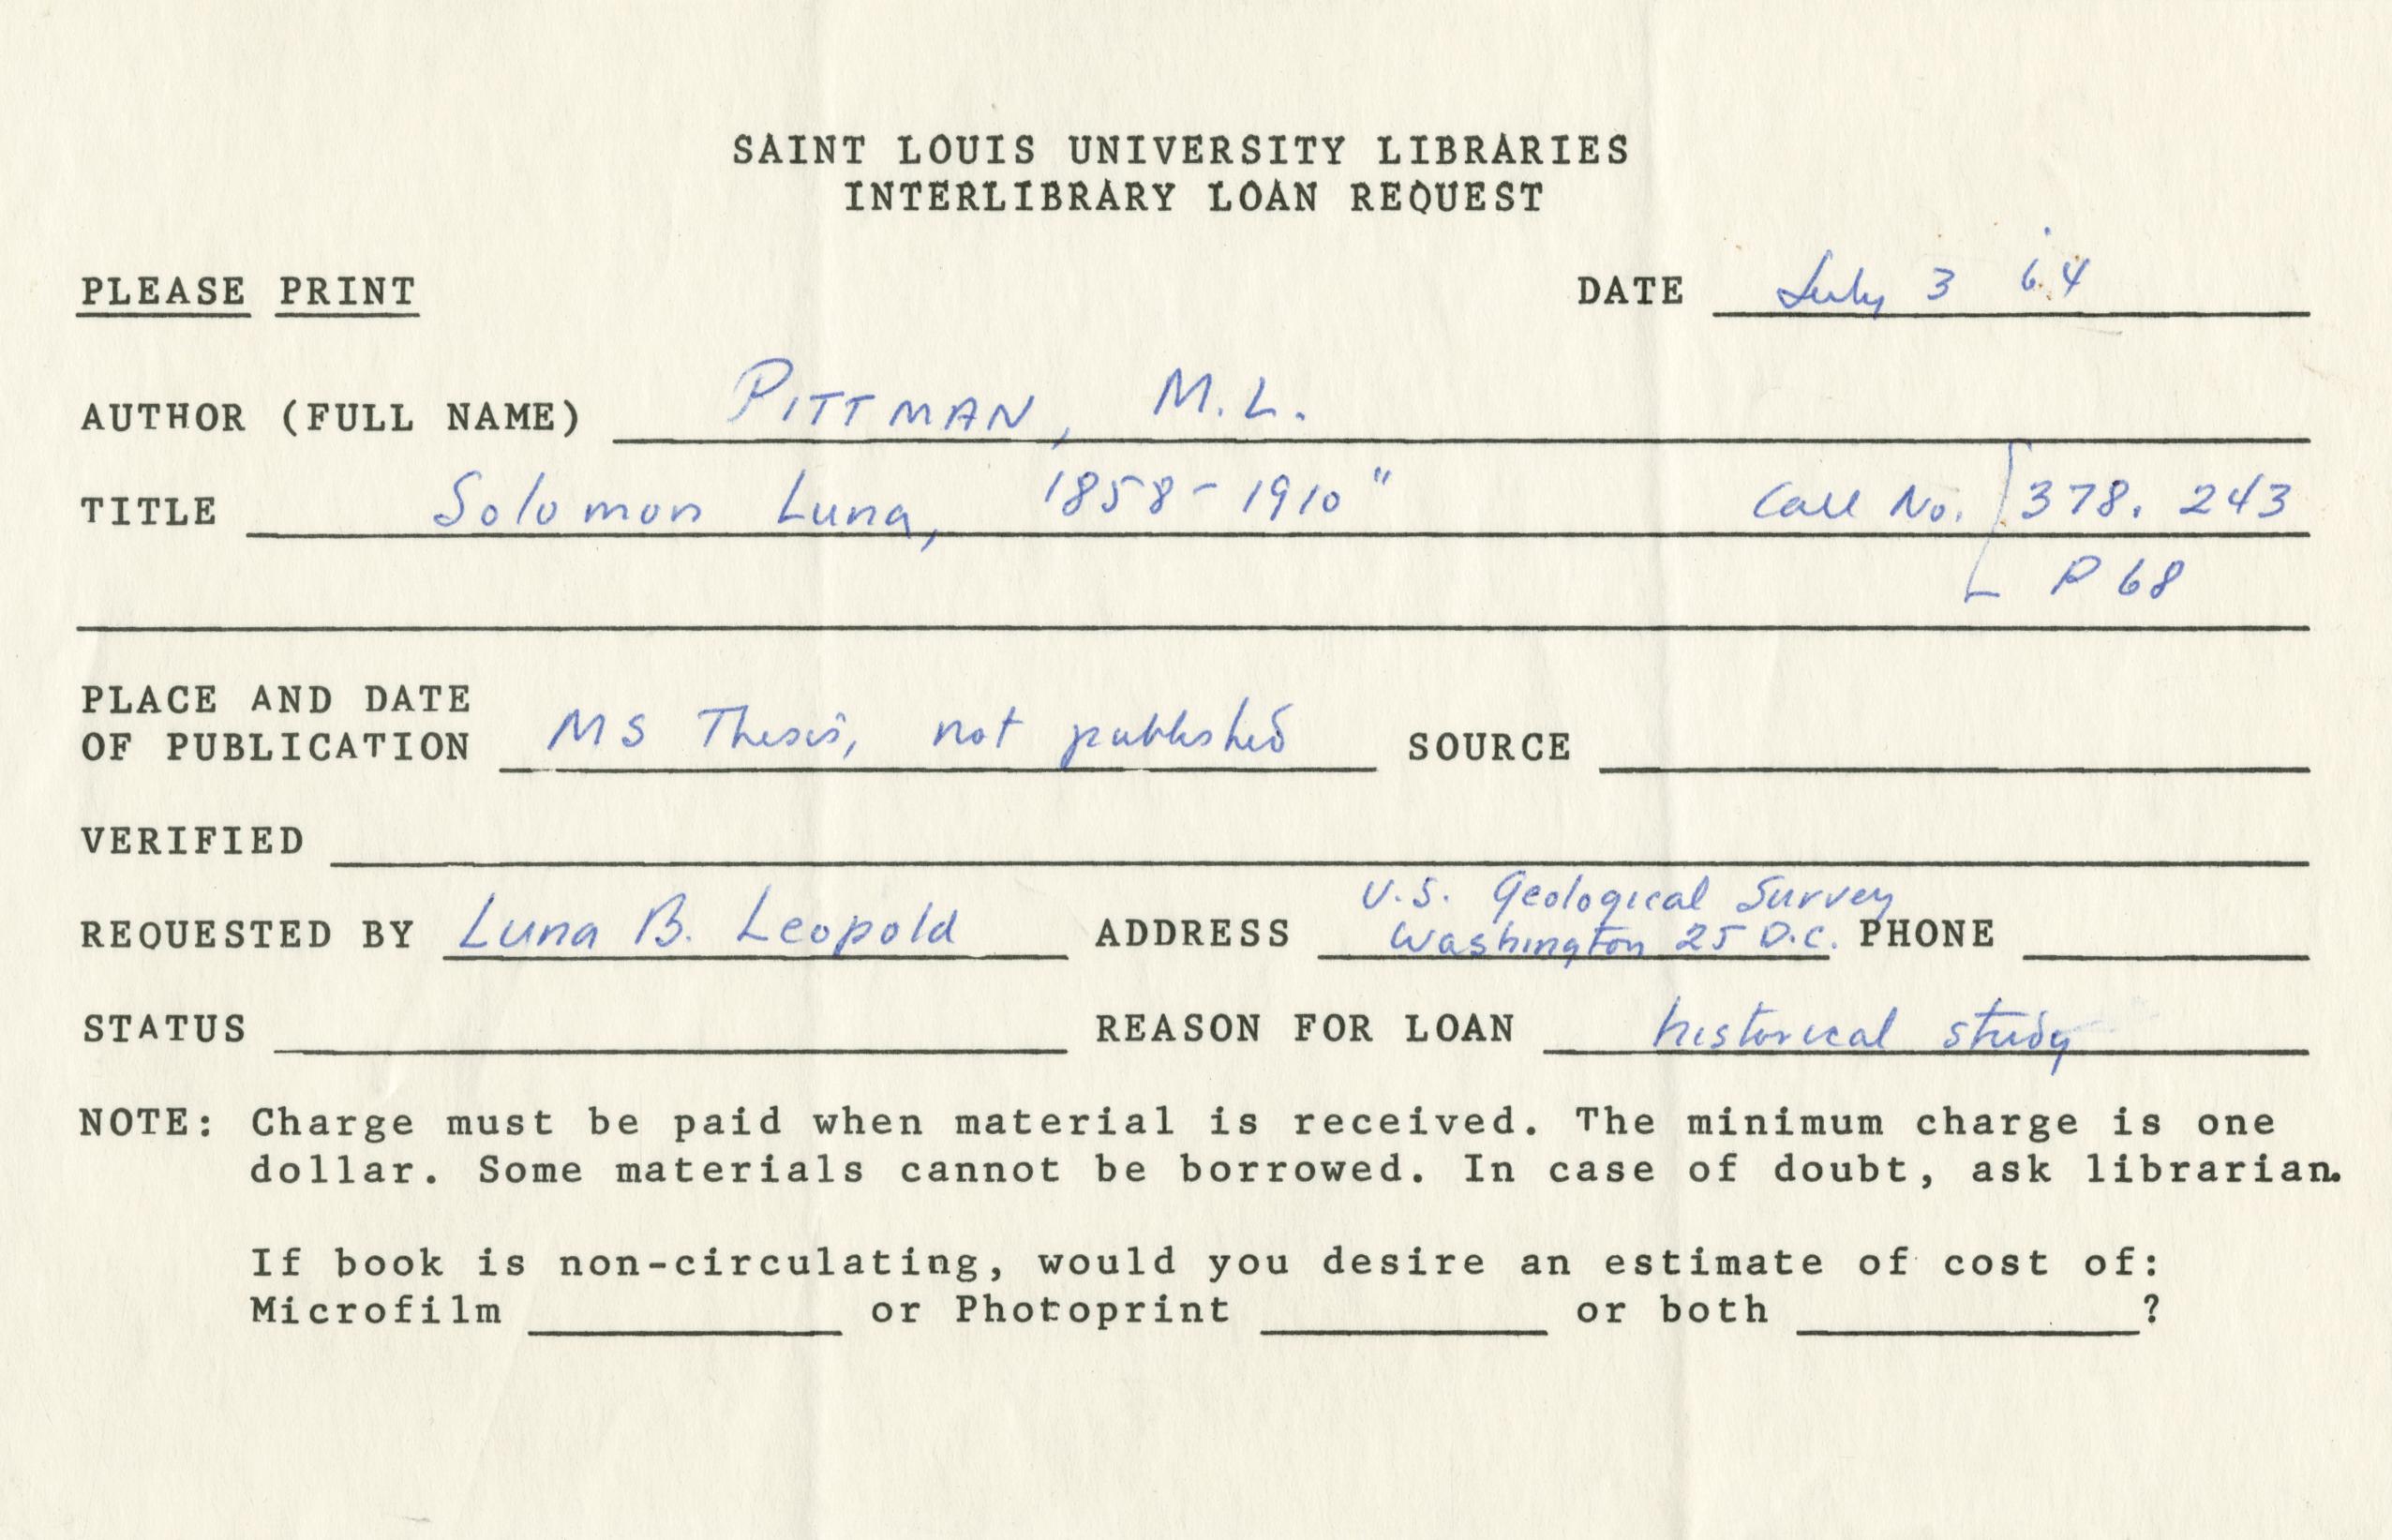 SAINT LOUIS UNIVERSITY LIBRARIES
INTERLIBRARY LOAN REQUEST
PLEASE PRINT DATE July 3 64
AUTHOR (FULL NAME) PITTMAN, M.L.
TITLE Solomon Luna, 1858-1910" Call No. [378.243
P68
PLACE AND DATE
OF PUBLICATION MS Thesis, not published SOURCE
VERIFIED
U.S. Geological Survey
REQUESTED BY Luna B. Leopold ADDRESS Washington 25 D.C. PHONE
STATUS REASON FOR LOAN historical study
NOTE: Charge must be paid when material is received. The minimum charge is one
dollar. Some materials cannot be borrowed. In case of doubt, ask librarian.
If book is non-circulating, would you desire an estimate of cost of:
Microfilm or Photoprint or both ?